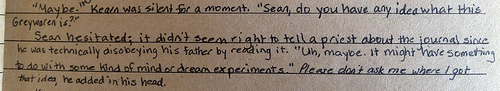 "Maybe." Kearn was silent for a moment. "Sean, do you have any idea what this
Greywaren is?"
Sean hesitated; it didn't seem right to tell a priest about the journal since
he was technically disobeying his father by reading it. "Uh, maybe. It might have something
to do with some kind of mind or dream experiments." Please don't ask me where I got
that idea, he added in his head.